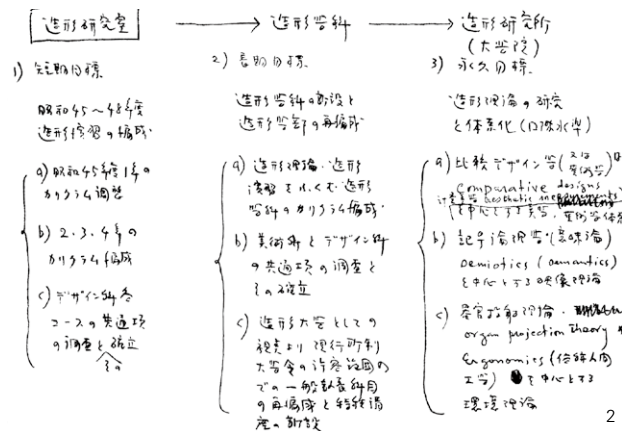 造形研究室
1) 短期目標
昭和45～48年度
造形演習の編成
a) 昭和45年度1年の
カリキュラム調整
b) 2・3・4年の
カリキュラム編成
c) デザイン科各
コースの共通項
の調査と確立
その
造形学科
2) 長期目標
造形学科の新設と
造形学部の再編成
a) 造形理論・造形
演習をふくむ造形
学科のカリキュラム編成
b) 美術科とデザイン科
の共通項の調査と
その確立
c) 造形大学としての
視点より現行学制
大学令の許容範囲内
での一般教養科目
の再編成と特殊講
座の新設
造形研究所
(大学院)
3) 永久目標
造形理論の研究
と体系化(国際水準)
a) 比較デザイン学
comparative designs
計量美学 aesthetic measurements
を中心とする美学
b) 記号論理学(意味論)
semiotics (semantics)
を中心とする映像理論
c) 器官投射理論
organ projection theory
Ergonomics (
工学) を中心とする
環境理論
2